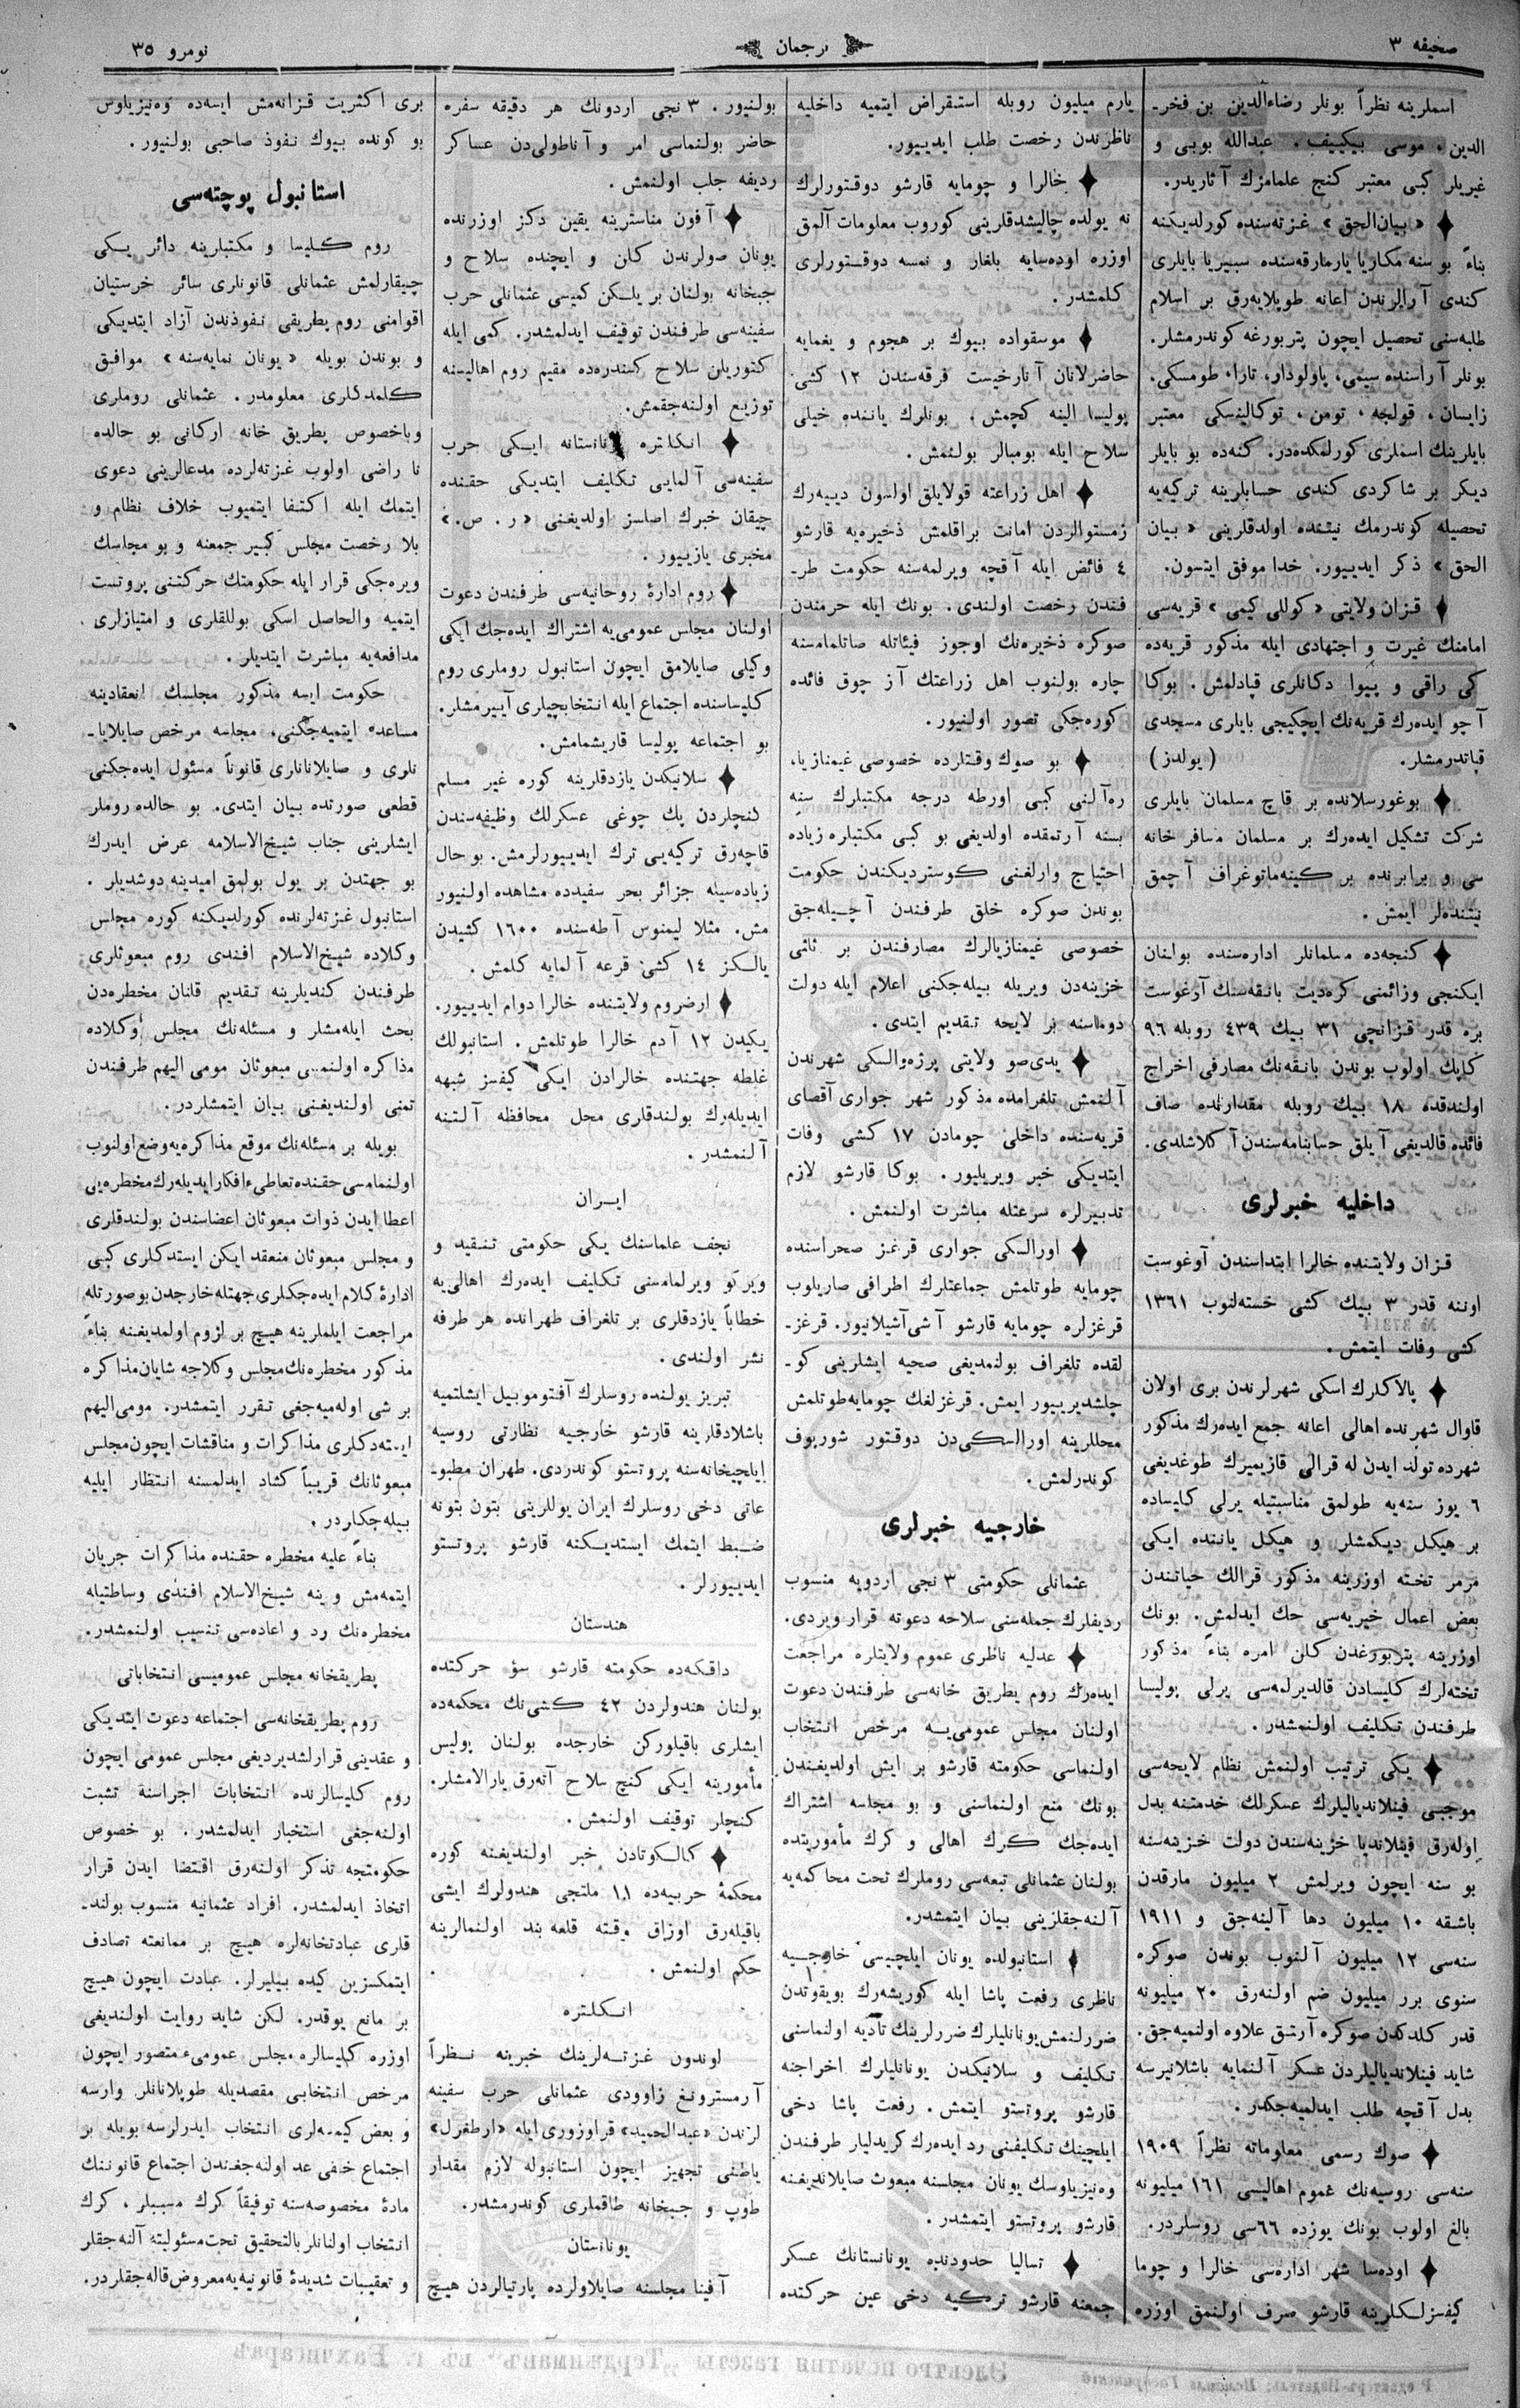 صحیفه ٣
ترجمان
نومرو ٣٥
اسملرینه نظراً بونلر رضاءالدین بن فخر-
الدین، موسی بیکییف، عبدالله بوبی و
غیریلر کبی معتبر کنج علمامزك آثاریدر.
« بیان‌الحق » غزته‌سنده کورلدیکنه
بناءً بو سنه مکاریا یارمارقه‌سنده سیبیریا بایلری
کندی آرالرندن اعانه طوپلایه‌رق بر اسلام
طلبه‌سنی تحصیل ایچون پتربورغه کوندرمشلر.
بونلر آراسنده سیمی، پاولودار، تارا، طومسکی،
زایسان، قولجه، تومن، توکالینسکی معتبر
بایلرینك اسملری کورلمکده‌در. کنه‌ده بو بایلر
دیکر بر شاکردی کندی حسابلرینه ترکیه‌یه
تحصیله کوندرمك نیتنده اولدقلرینی « بیان
الحق » ذکر ایدییور. خدا موفق ایتسون.
قزان ولایتی « کوللی کیمی » قریه‌سی
امامنك غیرت و اجتهادی ایله مذکور قریه‌ده
کی راقی و پیوا دکانلری قپادلمش. بوکا
آچو ایده‌رك قریه‌نك ایچکیجی بایلری مسجدی
قپاتدرمشلر. (یولدز)
بوغورسلانده بر قاچ مسلمان بایلری
شرکت تشکیل ایده‌رك بر مسلمان مسافر خانه
سی و برابرنده بر کینه‌ماتوغراف آچمق
نیتنده‌لر ایمش.
کنجه‌ده مسلمانلر اداره‌سنده بولنان
ایکنجی وزائمنی کره‌دیت بانقه‌سنك آوغوست
بره قدر قزانچی ٣١ بیك ٤٣٩ روبله ٩٦
کاپك اولوب بوندن بانقه‌نك مصارفی اخراج
اولندقده ١٨ بیك روبله مقدارنده صاف
فائده قالدیغی آیلق حسابنامه‌سندن آکلاشلدی.
داخلیه خبرلری
قزان ولایتنده خالرا ابتداسندن آوغوست
اوننه قدر ٣ بیك کشی خسته‌لنوب ١٣٦١
کشی وفات ایتمش.
پالاکلرك اسکی شهرلرندن بری اولان
قاوال شهرنده اهالی اعانه جمع ایده‌رك مذکور
شهرده تولد ایدن له قرالی قازیمیرك طوغدیغی
٦ یوز سنه‌یه طولمق مناسبتیله یرلی کلیساده
بر هیکل دیکمشلر و هیکل یاننده ایکی
مرمر تخته اوزرینه مذکور قرالك حیاتندن
بعض اعمال خیریه‌سی حك ایدلمش. بونك
اوزرینه پتربورغدن کلن امره بناءً مذکور
تخته‌لرك کلیسادن قالدیرلمه‌سی یرلی پولیسا
طرفندن تکلیف اولنمشدر.
یکی ترتیب اولنمش نظام لایحه‌سی
موجبی فینلاندیالیلرك عسکرلك خدمتنه بدل
اوله‌رق فینلاندیا خزینه‌سندن دولت خزینه‌سنه
بو سنه ایچون ویرلمش ٢ میلیون مارقدن
باشقه ١٠ میلیون دها آلینه‌جق و ١٩١١
سنه‌سی ١٢ میلیون آلنوب بوندن صوکره
سنوی برر میلیون ضم اولنه‌رق ٢٠ میلیونه
قدر کلدکدن صوکره آرتق علاوه اولنمیه‌جق.
شاید فینلاندیالیلردن عسکر آلنمایه باشلانیرسه
بدل آقچه طلب ایدلمیه‌جکدر.
صوك رسمی معلوماته نظراً ١٩٠٩
سنه‌سی روسیه‌نك عموم اهالیسی ١٦١ میلیونه
بالغ اولوب بونك یوزده ٦٦سی روسلردر.
اوده‌سا شهر اداره‌سی خالرا و چوما
کیفسزلکلرینه قارشو صرف اولنمق اوزره
یارم میلیون روبله استقراض ایتمیه داخلیه
ناظرندن رخصت طلب ایدییور.
خالرا و چومایه قارشو دوقتورلرك
نه یولده چالیشدقلرینی کوروب معلومات آلمق
اوزره اوده‌سایه بلغار و نمسه دوقتورلری
کلمشدر.
موسقواده بیوك بر هجوم و یغمایه
حاضرلانان آنارخیست فرقه‌سندن ١٢ کشی
پولیسا الینه کچمش، بونلرك یاننده خیلی
سلاح ایله بومبالر بولنمش.
اهل زراعته قولایلق اولسون دییه‌رك
زمستوالردن امانت براقلمش ذخیره‌یه قارشو
٤ فائض ایله آقچه ویرلمه‌سنه حکومت طر-
فندن رخصت اولندی. بونك ایله خرمندن
صوکره ذخیره‌نك اوجوز فیئاتله صاتلمامسنه
چاره بولنوب اهل زراعتك آز چوق فائده
کوره‌جکی تصور اولنیور.
بو صوك وقتلرده خصوصی غیمنازیا،
ره‌آلنی کبی اورطه درجه مکتبلرك سنه
بسنه آرتمقده اولدیغی بو کبی مکتبلره زیاده
احتیاج وارلغنی کوستردیکندن حکومت
بوندن صوکره خلق طرفندن آچیله‌جق
خصوصی غیمنازیالرك مصارفندن بر ثاثی
خزینه‌دن ویریله بیله‌جکنی اعلام ایله دولت
دوماسنه بر لایحه تقدیم ایتدی.
یدی‌صو ولایتی پرژه‌والسکی شهرندن
آلنمش تلغرامده مذکور شهر جواری آقصای
قریه‌سنده داخلی چومادن ١٧ کشی وفات
ایتدیکی خبر ویریلیور. بوکا قارشو لازم
تدبیرلره سرعتله مباشرت اولنمش.
اورالسکی جواری قرغز صحراسنده
چومایه طوتلمش جماعتلرك اطرافی صاریلوب
قرغزلره چومایه قارشو آشی آشیلانیور. قرغز-
لقده تلغراف بولنمدیغی صحیه ایشلرینی کو-
چلشدیرییور ایمش. قرغزلغك چومایه‌طوتلمش
محللرینه اورالسکی‌دن دوقتور شوریوف
کوندرلمش.
خارجیه خبرلری
عثمانلی حکومتی ٣ نجی اردویه منسوب
ردیفلرك جمله‌سنی سلاحه دعوته قرار ویردی.
عدلیه ناظری عموم ولایتلره مراجعت
ایده‌رك روم پطریق خانه‌سی طرفندن دعوت
اولنان مجلس عمومی‌یه مرخص انتخاب
اولنماسی حکومته قارشو بر ایش اولدیغندن
بونك منع اولنماسنی و بو مجلسه اشتراك
ایده‌جك کرك اهالی و کرك مأموریتده
بولنان عثمانلی تبعه‌سی روملرك تحت محاکمه‌یه
آلنه‌جقلرینی بیان ایتمشدر.
استانبولده یونان ایلچیسی خارجیه
ناظری رفعت پاشا ایله کوریشه‌رك بویقوتدن
ضررلنمش‌یونانلیلرك ضررلرینك تأدیه اولنماسنی
تکلیف و سلانیکدن یونانلیلرك اخراجنه
قارشو پروتستو ایتمش. رفعت پاشا دخی
ایلچینك تکلیفنی رد ایده‌رك کریدلیلر طرفندن
وه‌نیزیاوسك یونان مجلسنه مبعوث صایلاندیغنه
قارشو پروتستو ایتمشدر.
تسالیا حدودنده یونانستانك عسکر
جمعنه قارشو ترکیه دخی عین حرکتده
بولنیور. ٣ نجی اردونك هر دقیقه سفره
حاضر بولنماسی امر و آناطولی‌دن عساکر
ردیفه جلب اولنمش.
آفون مناسترینه یقین دکز اوزرنده
یونان صولرندن کلن و ایچنده سلاح و
جبخانه بولنان بر یلکن کمیسی عثمانلی حرب
سفینه‌سی طرفندن توقیف ایدلمشدر. کمی ایله
کتوریلن سلاح کسندره‌ده مقیم روم اهالیسنه
توزیع اولنه‌جقمش.
انکلتره یونانستانه ایکی حرب
سفینه‌سی آلمایی تکلیف ایتدیکی حقنده
چیقان خبرك اصلسز اولدیغنی « ر. ص. »
مخبری یازییور.
روم ادارهٔ روحانیه‌سی طرفندن دعوت
اولنان مجلس عمومی‌یه اشتراك ایده‌جك ایکی
وکیلی صایلامق ایچون استانبول روملری روم
کلیساسنده اجتماع ایله انتخابچیلری آییرمشلر.
بو اجتماعه پولیسا قاریشمامش.
سلانیکدن یازدقلرینه کوره غیر مسلم
کنجلردن پك چوغی عسکرلك وظیفه‌سندن
قاچه‌رق ترکیه‌یی ترك ایدییورلرمش. بو حال
زیاده‌سیله جزائر بحر سفیدده مشاهده اولنیور
مش. مثلا لیمنوس آطه‌سنده ١٦٠٠ کشیدن
یالکز ١٤ کشی قرعه آلمایه کلمش.
ارضروم ولایتنده خالرا دوام ایدییور.
یکیدن ١٢ آدم خالرا طوتلمش. استانبولك
غلطه جهتنده خالرادن ایکی کیفسز شبهه
ایدیله‌رك بولندقلری محل محافظه آلتنه
آلنمشدر.
ایران
نجف علماسنك یکی حکومتی تنقید و
ویرکو ویرلمامه‌سنی تکلیف ایده‌رك اهالی‌یه
خطاباً یازدقلری بر تلغراف طهرانده هر طرفه
نشر اولندی.
تبریز یولنده روسلرك آفتوموبیل ایشلتمیه
باشلادقلرینه قارشو خارجیه نظارتی روسیه
ایلچیخانه‌سنه پروتستو کوندردی. طهران مطبو-
عاتی دخی روسلرك ایران یوللرینی بتون بتونه
ضبط ایتمك ایستدیکنه قارشو پروتستو
ایدییورلر.
هندستان
داقکه‌ده حکومته قارشو سؤ حرکتده
بولنان هندولردن ٤٢ کشی‌نك محکمه‌ده
ایشلری باقیلورکن خارجده بولنان پولیس
مأمورینه ایکی کنج سلاح آته‌رق یارالامشلر.
کنجلر توقیف اولنمش.
کالکوتادن خبر اولندیغنه کوره
محکمهٔ حربیه‌ده ١١ ملتجی هندولرك ایشی
باقیله‌رق اوزاق وقته قلعه بند اولنمالرینه
حکم اولنمش.
انکلتره
لوندون غزته‌لرینك خبرینه نظراً
آرمسترونغ زاوودی عثمانلی حرب سفینه
لرندن «عبدالحمید» قراوزوری ایله «ارطغرل»
یاطنی تجهیز ایچون استانبوله لازم مقدار
طوپ و جبخانه طاقملری کوندرمشدر.
یونانستان
آفینا مجلسنه صایلاولرده پارتیالردن هیچ
بری اکثریت قزانه‌مش ایسه‌ده وه‌نیزیلوس
بو کونده بیوك نفوذ صاحبی بولنیور.
استانبول پوچته‌سی
روم کلیسا و مکتبلرینه دائر یکی
چیقارلمش عثمانلی قانونلری سائر خرستیان
اقوامنی روم پطریقی نفوذندن آزاد ایتدیکی
و بوندن بویله « یونان نمایه‌سنه » موافق
کلمدکلری معلومدر. عثمانلی روملری
وباخصوص پطریق خانه ارکانی بو حالده
نا راضی اولوب غزته‌لرده مدعالرینی دعوی
ایتمك ایله اکتفا ایتمیوب خلاف نظام و
بلا رخصت مجلس کبیر جمعنه و بو مجلسك
ویره‌جکی قرار ایله حکومتك حرکتنی پروتست
ایتمیه والحاصل اسکی بوللقلری و امتیازلری
مدافعه‌یه مباشرت ایتدیلر.
حکومت ایسه مذکور مجلسك انعقادینه
مساعده ایتمیه‌جکنی، مجلسه مرخص صایلایا-
نلری و صایلاناناری قانوناً مسئول ایده‌جکنی
قطعی صورتده بیان ایتدی. بو حالده روملر
ایشلرینی جناب شیخ‌الاسلامه عرض ایدرك
بو جهتدن بر یول بولمق امیدینه دوشدیلر.
استانبول غزته‌لرنده کورلدیکنه کوره مجلس
وکلاده شیخ‌الاسلام افندی روم مبعوثلری
طرفندن کندیلرینه تقدیم قلنان مخطره‌دن
بحث ایله‌مشلر و مسئله‌نك مجلس وکلاده
مذاکره اولنمسی مبعوثان مومی الیهم طرفندن
تمنی اولندیغنی بیان ایتمشلردر.
بویله بر مسئله‌نك موقع مذاکره‌یه‌وضع‌اولنوب
اولنمامسی حقنده‌تعاطیء‌افکارایدیله‌رك‌مخطره‌یی
اعطا ایدن ذوات مبعوثان اعضاسندن بولندقلری
و مجلس مبعوثان منعقد ایکن ایستدکلری کبی
ادارهٔ کلام ایده‌جکلری جهتله‌خارجدن‌بوصورتله
مراجعت ایلملرینه هیچ بر لزوم اولمدیغنه بناءً
مذکور مخطره‌نك‌مجلس وکلاجه شایان‌مذاکره
بر شی اوله‌میه‌جغی تقرر ایتمشدر. مومی‌الیهم
ایسته‌دکلری مذاکرات و مناقشات ایچون‌مجلس
مبعوثانك قریباً کشاد ایدلمسنه انتظار ایلیه
بیله‌جکلردر.
بناءً علیه مخطره حقنده مذاکرات جریان
ایتمه‌مش وینه شیخ‌الاسلام افندی وساطتیله
مخطره‌نك رد و اعاده‌سی تنسیب اولنمشدر.
پطریقخانه مجلس عمومیسی انتخاباتی
روم پطریقخانه‌سی اجتماعه دعوت ایتدیکی
و عقدینی قرارلشدیردیغی مجلس عمومی ایچون
روم کلیسالرنده انتخابات اجراسنه تشبث
اولنه‌جغی استخبار ایدلمشدر. بو خصوص
حکومتجه تذکر اولنه‌رق اقتضا ایدن قرار
اتخاذ ایدلمشدر. افراد عثمانیه منسوب بولند-
قلری عبادتخانه‌لره هیچ بر ممانعته تصادف
ایتمکسزین کیده بیلیرلر. عبادت ایچون هیچ
بر مانع یوقدر. لکن شاید روایت اولندیغی
اوزره کلیسالره مجلس عمومیء متصور ایچون
مرخص انتخابی مقصدیله طوپلانانلر وارسه
و بعض کیمسه‌لری انتخاب ایدرلرسه بویله بر
اجتماع خفی عد اولنه‌جغندن اجتماع قانوننك
مادهٔ مخصوصه‌سنه توفیقاً کرك مسببلر، کرك
انتخاب اولنانلر بالتحقیق تحت‌مسئولیته آلنه‌جقلر
و تعقیبات شدیدهٔ قانونیه‌یه‌معروض‌قاله‌جقلردر.